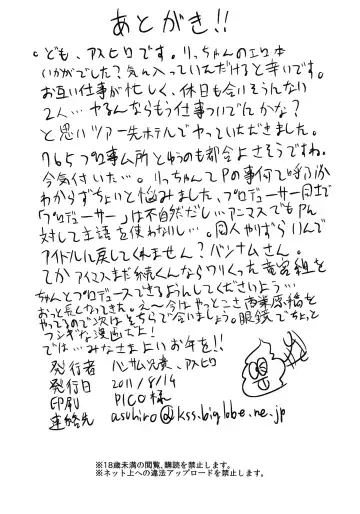 あとがき!!
ども、アスヒロです。りっちゃんのエロ本
いかがでした?気に入っていただけると幸いです。
お互い仕事が忙しく、休日も合いそうんない
2人…ヤるんならもう仕事ついでんかな?
と思いツアー先ホテルでやっていただきました。
765プロ事ム所とゆうのも都合よさそうですね。
今気付いた…。りっちゃんてPの事何て呼ぶか
わからずちょいと悩みました、プロデューサー同士で
「プロデューサー」は不自然だし…アニマスでもPに
対して主語を使わないし…。同人やりずらいんで
アイドルに戻してくれません?バンナムさん。
てかアイマスまだ続くんなら
ちゃんとプロデュースできるよんしてくださいよう…
おっと長くなってきた。え〜今はやっとこさ商業原稿を
やってるので次はそちらで会いましょう。眼鏡でちょっと
フシギな漫画だよ!
では…みなさまよいお年を!!
発行者 ハンサム兄貴、アスヒロ
発行日 2011/8/14
印刷 PICO様
連絡先 asuhiro@kss.biglobe.ne.jp
※18歳未満の閲覧、購読を禁止します。
※ネット上への違法アップロードを禁止します。